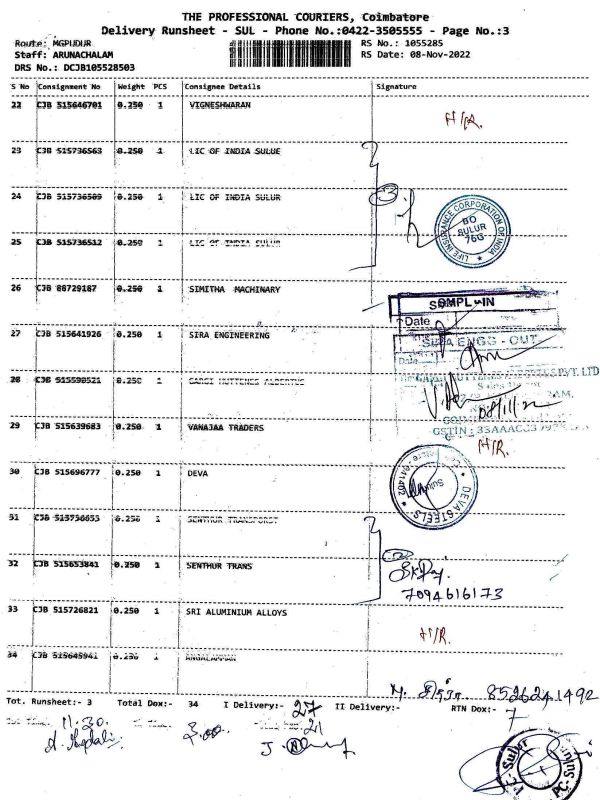 THE PROFESSIONAL COURIERS, Coimbatore
Delivery Runsheet - SUL - Phone No.:0422-3505555 - Page No.:3
Route: MGPUDUR
RS No.: 1055285
Staff: ARUNACHALAM
RS Date: 08-Nov-2022
DRS No.: DCJB105528503
S No Consignment No Weight PCS Consignee Details Signature
22 CJB 515646701 0.250 1 VIGNESHWARAN
H/R.
23 CJB 515736563 0.250 1 LIC OF INDIA SULUE
24 CJB 515736509 0.250 1 LIC OF INDIA SULUR
3
LIFE INSURANCE CORPORATION OF INDIA
BO
SULUR
76G
25 CJB 515736512 0.250 1 LIC OF INDIA SULUR
26 CJB 88729187 0.250 1 SIMITHA MACHINARY
Date
27 CJB 515641926 0.250 1 SIRA ENGINEERING
SIRA ENGG - OUT
Date
28 CJB 515590521 0.250 1 GARGI HUTTENES ALBERTUS
08/11/22
GSTIN
29 CJB 515639683 0.250 1 VANAJAA TRADERS
H/R.
30 CJB 515696777 0.250 1 DEVA
DEVA STEELS
Sulur
31 0.250 1 SENTHUR TRANSPORST
32 CJB 515653841 0.250 1 SENTHUR TRANS
7094616173
33 CJB 515726821 0.250 1 SRI ALUMINIUM ALLOYS
H/R.
34 CJB 515645941 0.250 1 ANGALAMMAN
8526241492
Tot. Runsheet:- 3 Total Dox:- 34 I Delivery:- 27 II Delivery:- RTN Dox:- 7
11.30. 3.00. 21
PC- Sulur